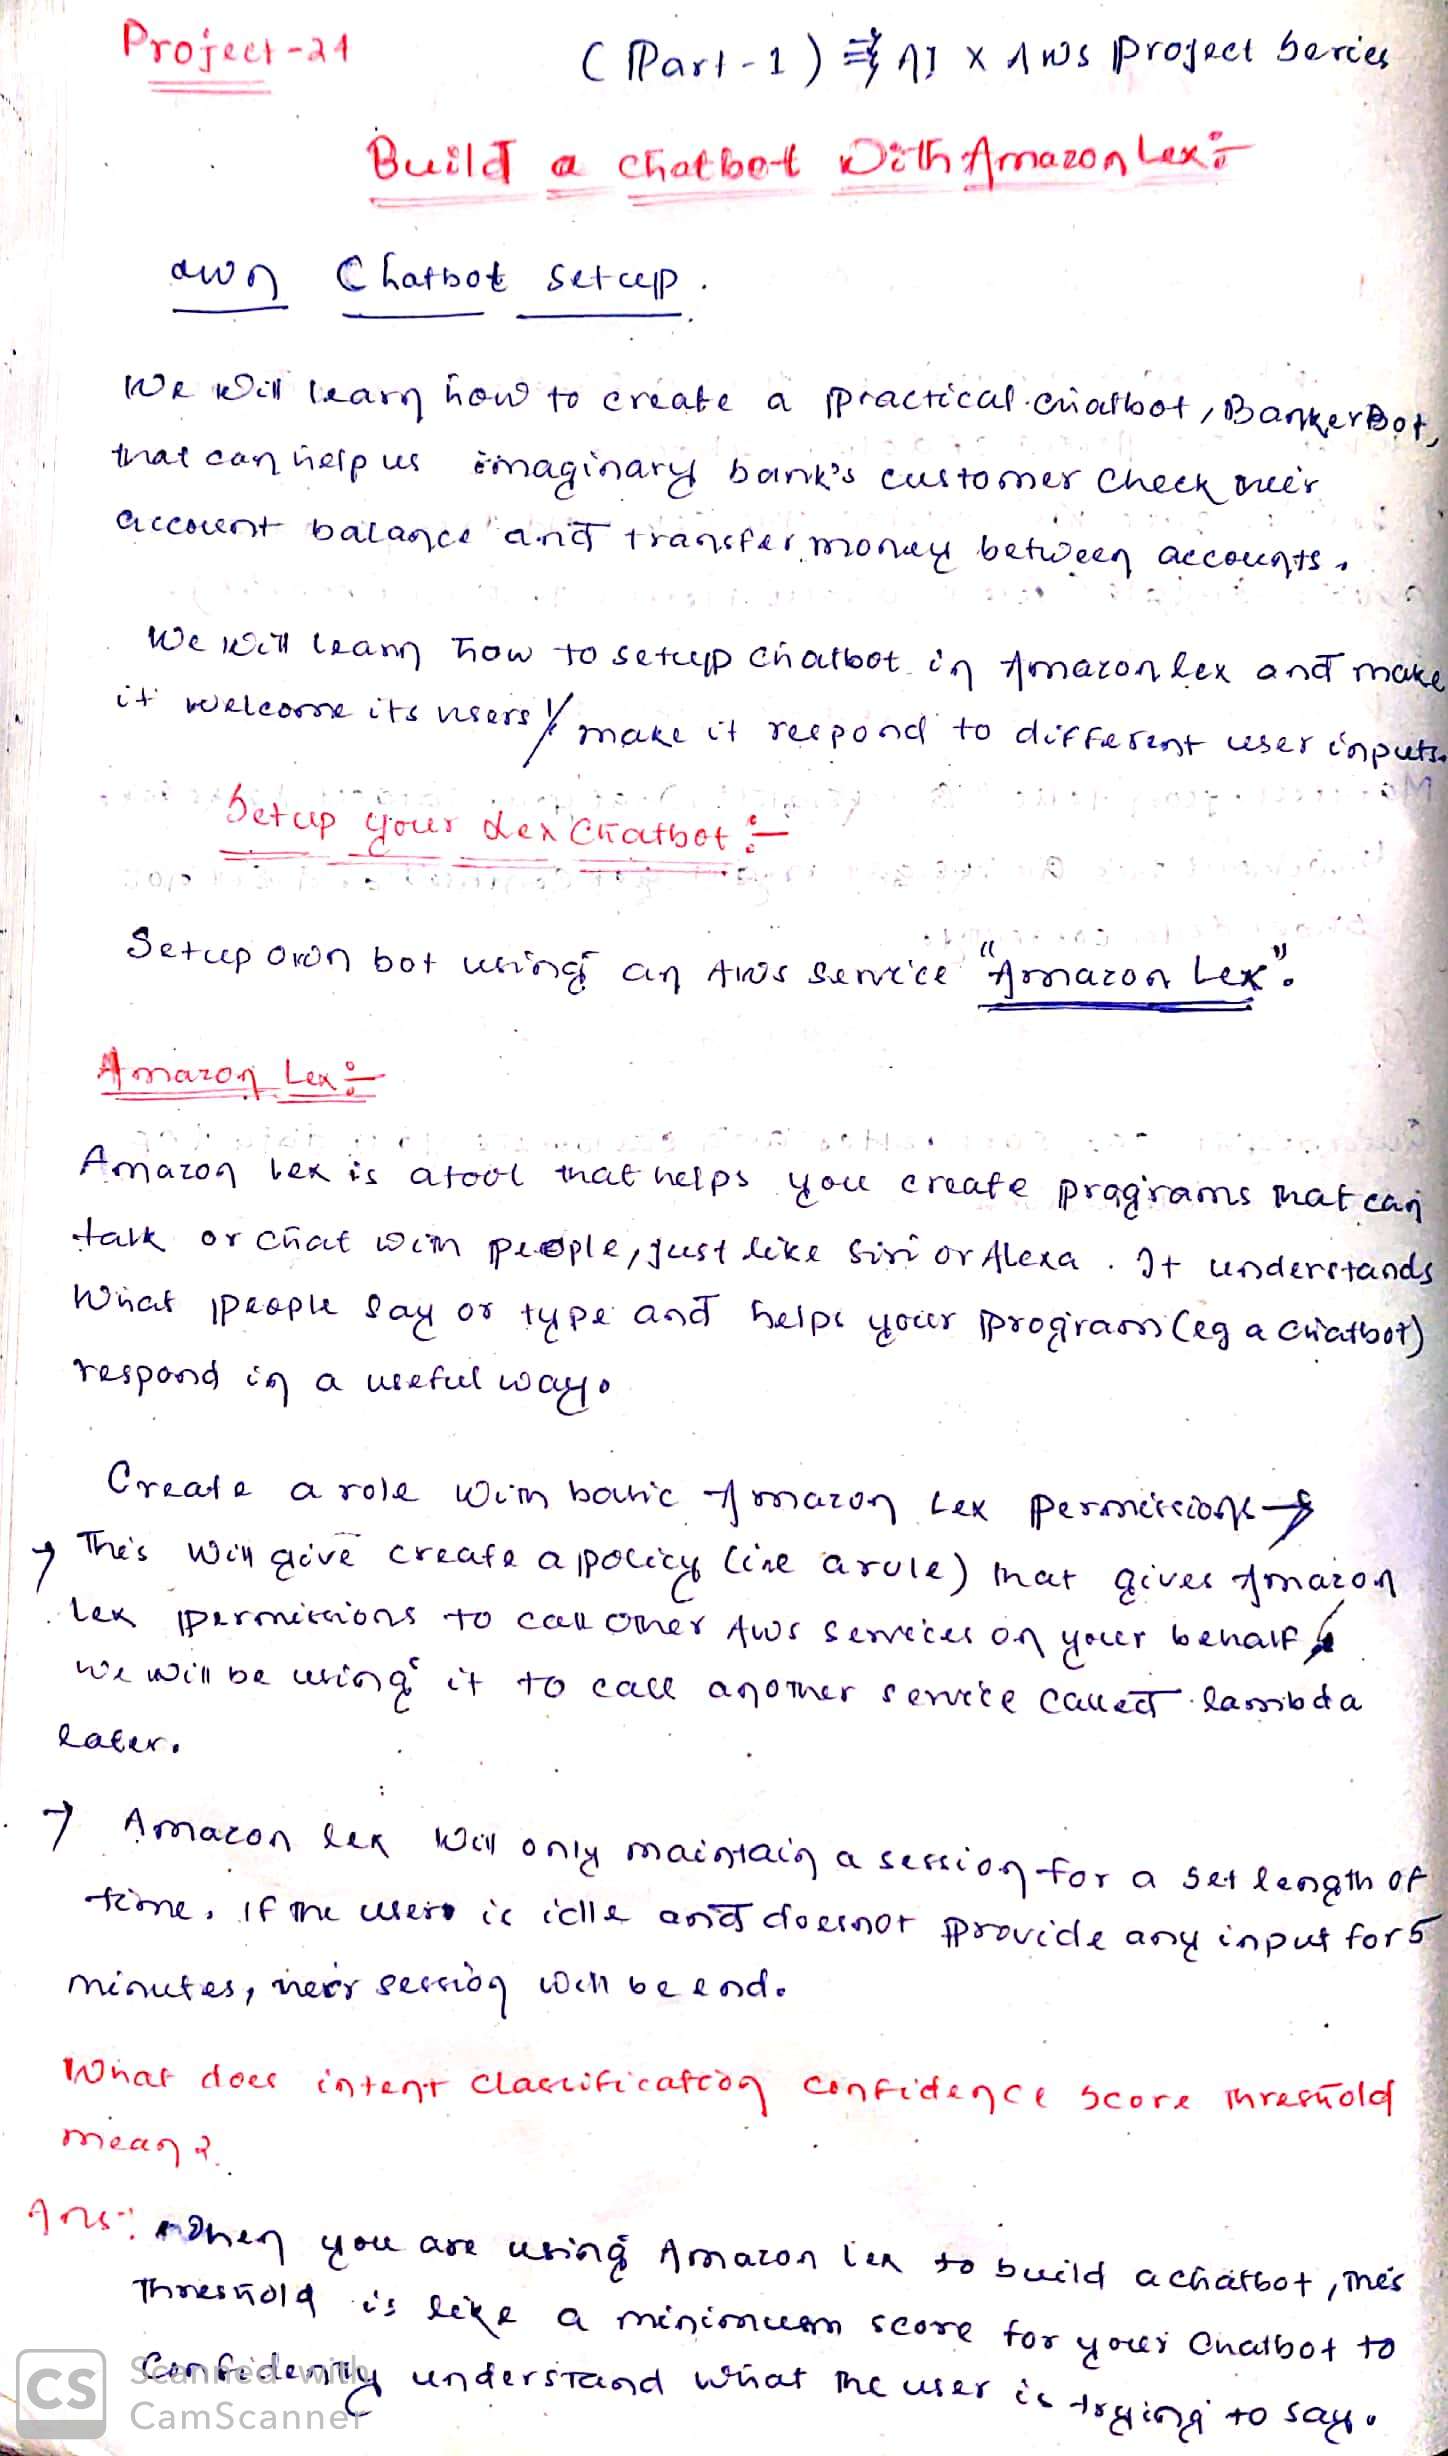 Project-21
(Part-1) ⇒ AI x AWS Project Series
Build a chatbot With Amazon Lex:-
own Chatbot setup.
We will learn how to create a practical chatbot, BankerBot,
that can help us imaginary bank's customer check their
account balance and transfer money between accounts.
We will learn how to setup chatbot in Amazon lex and make
it welcome its users / make it respond to different user inputs.
Setup your Lex Chatbot :-
Setup own bot using an AWS Service "Amazon Lex".
Amazon Lex :-
Amazon Lex is a tool that helps you create programs that can
talk or chat with people, just like Siri or Alexa. It understands
What people say or type and helps your program (eg a chatbot)
respond in a useful way.
Create a role with basic Amazon Lex permissions →
→ This will give create a policy (like a rule) that gives Amazon
Lex permissions to call other AWS services on your behalf
we will be using it to call another service called lambda
later.
→ Amazon lex will only maintain a session for a set length of
time, if the user is idle and doesnot provide any input for 5
minutes, their session will be end.
What does intent classification confidence score threshold
mean?
Ans:- When you are using Amazon lex to build a chatbot, this
Threshold is like a minimum score for your Chatbot to
Confidently understand what the user is trying to say.
CS Scanned with
CamScanner